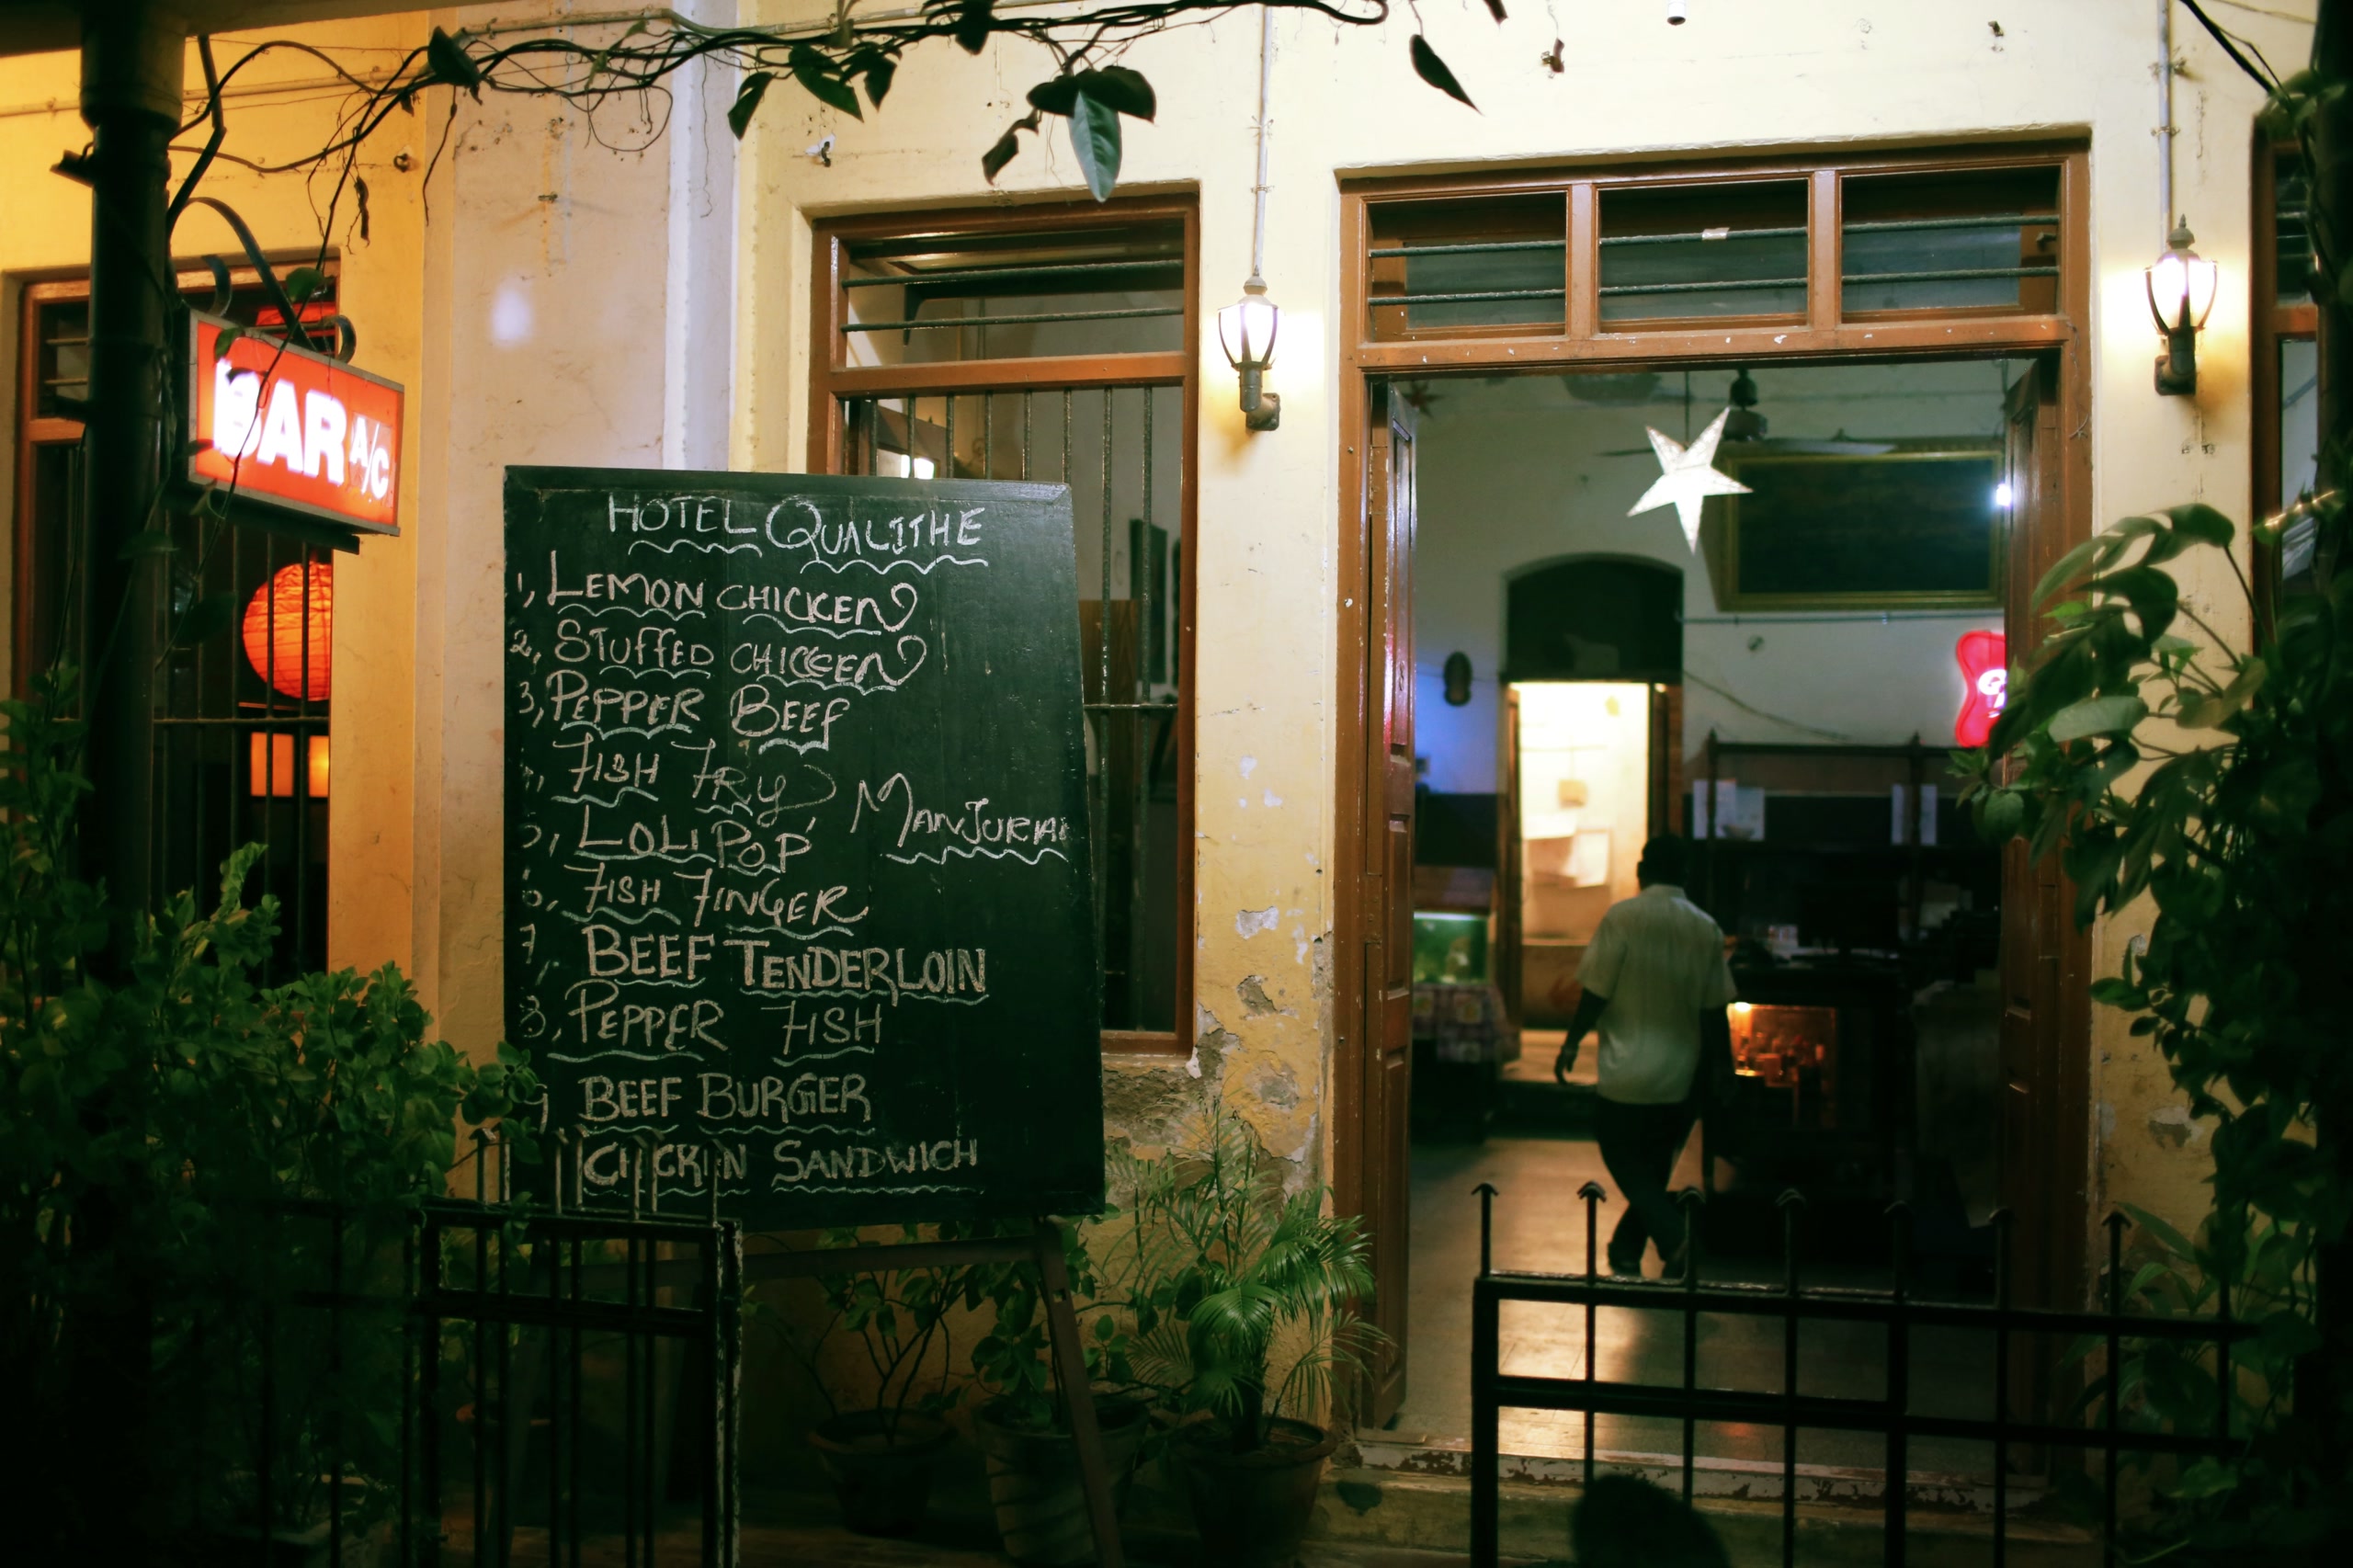 BAR A/C
HOTEL QUALITHE
1, LEMON CHICKEN
2, STUFFED CHICKEN
3, PEPPER BEEF
4, FISH FRY
5, LOLIPOP MANJURIAN
6, FISH FINGER
7, BEEF TENDERLOIN
8, PEPPER FISH
9 BEEF BURGER
CHICKIN SANDWICH